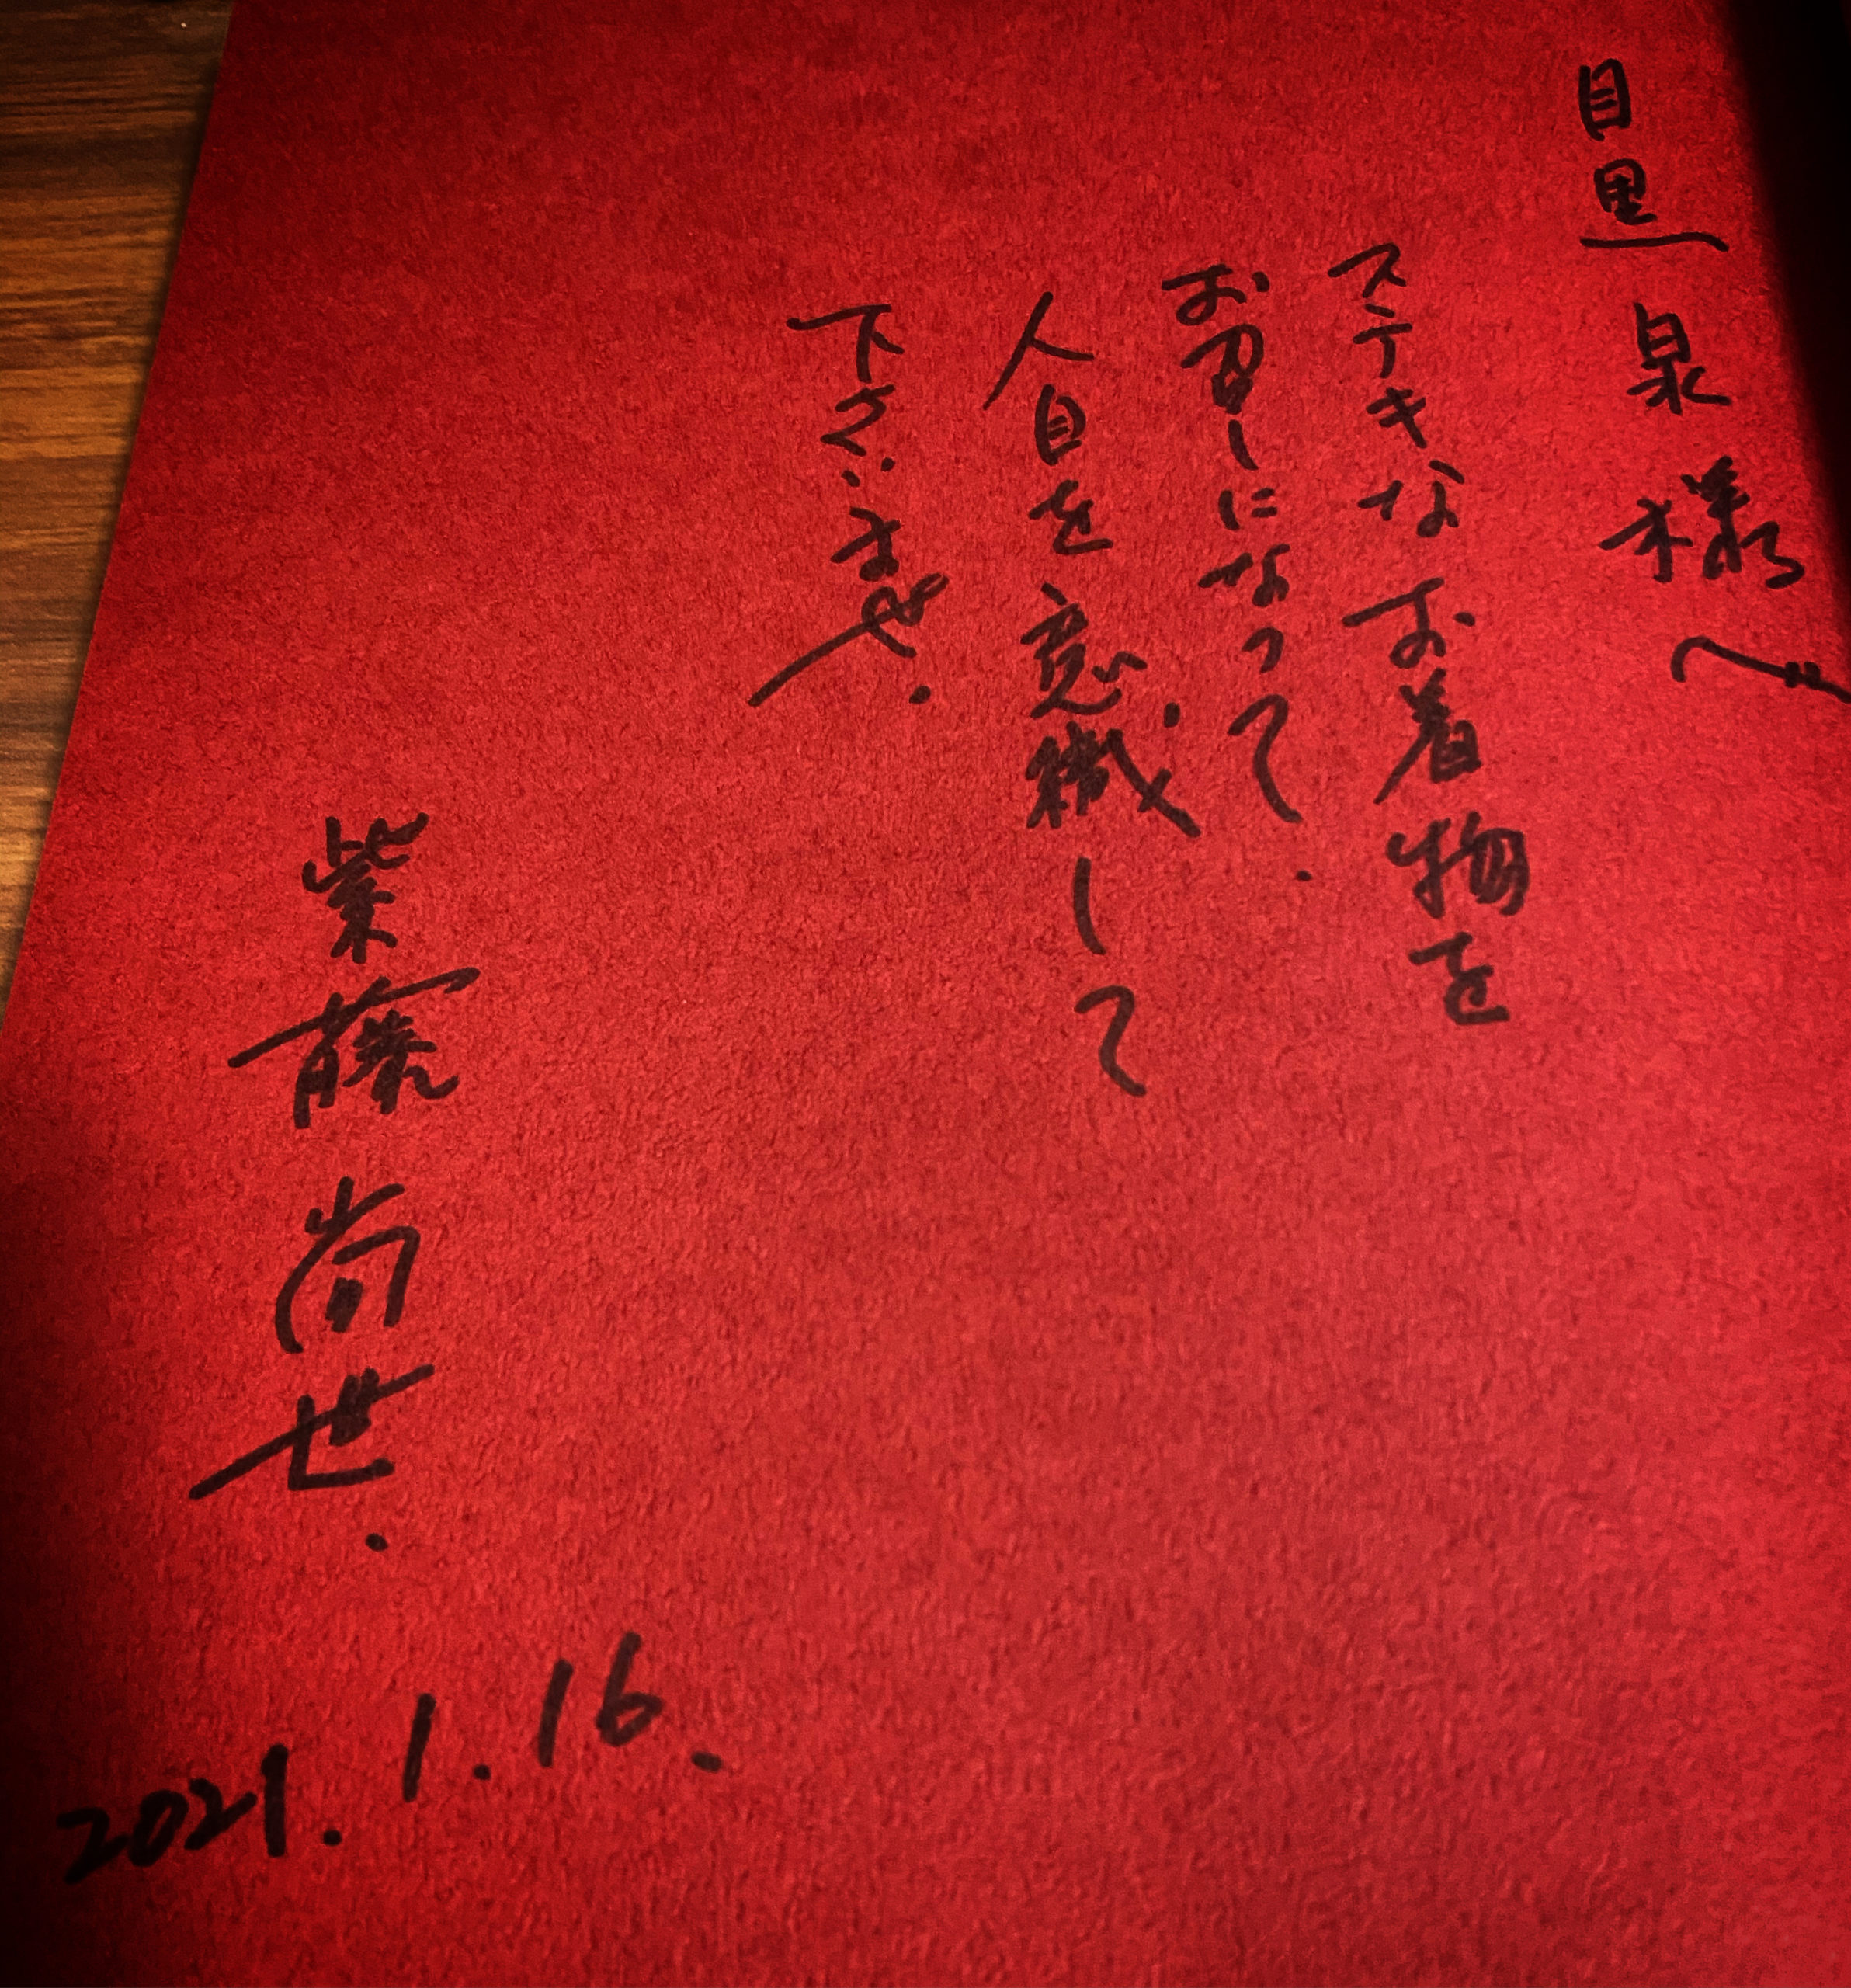 目黒 泉 様へ
ステキなお着物を
お召しになって、
人目を意識して
下さいませ.
紫藤尚世.
2021.1.16.